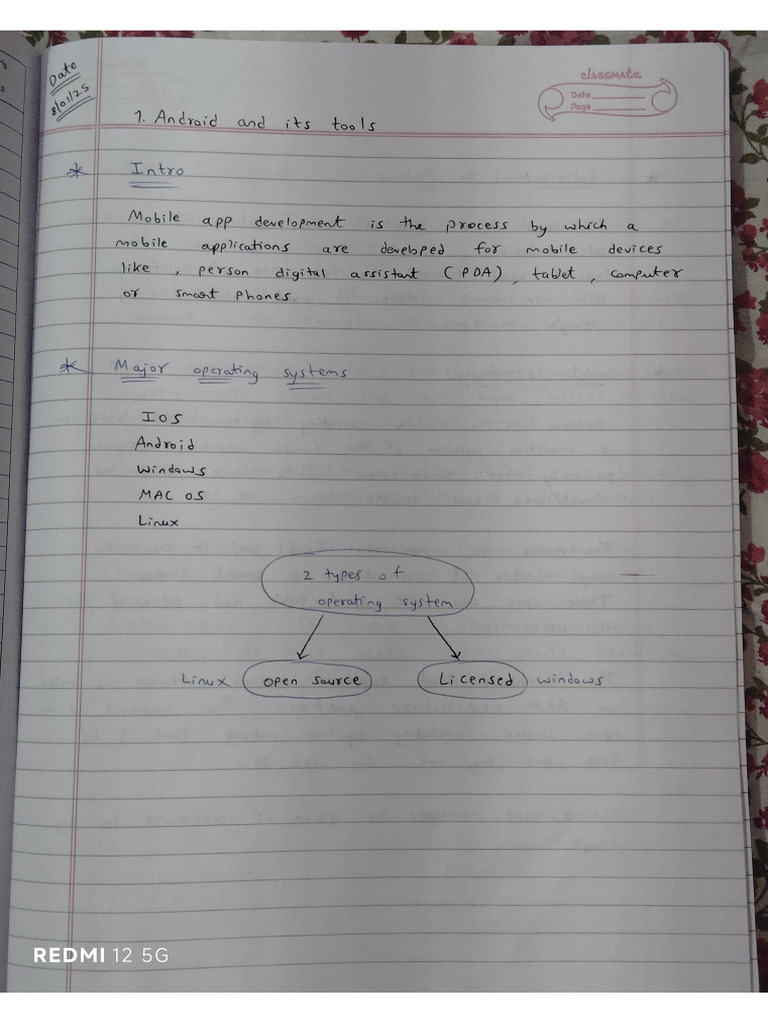 Date
8/01/25
classmate
Date
Page
1. Android and its tools
* Intro
Mobile app development is the process by which a
mobile applications are developed for mobile devices
like , person digital assistant (PDA), tablet , computer
or smart phones.
* Major operating systems
IOS
Android
Windows
MAC OS
Linux
2 types of
operating system
Linux open source Licensed windows
REDMI 12 5G